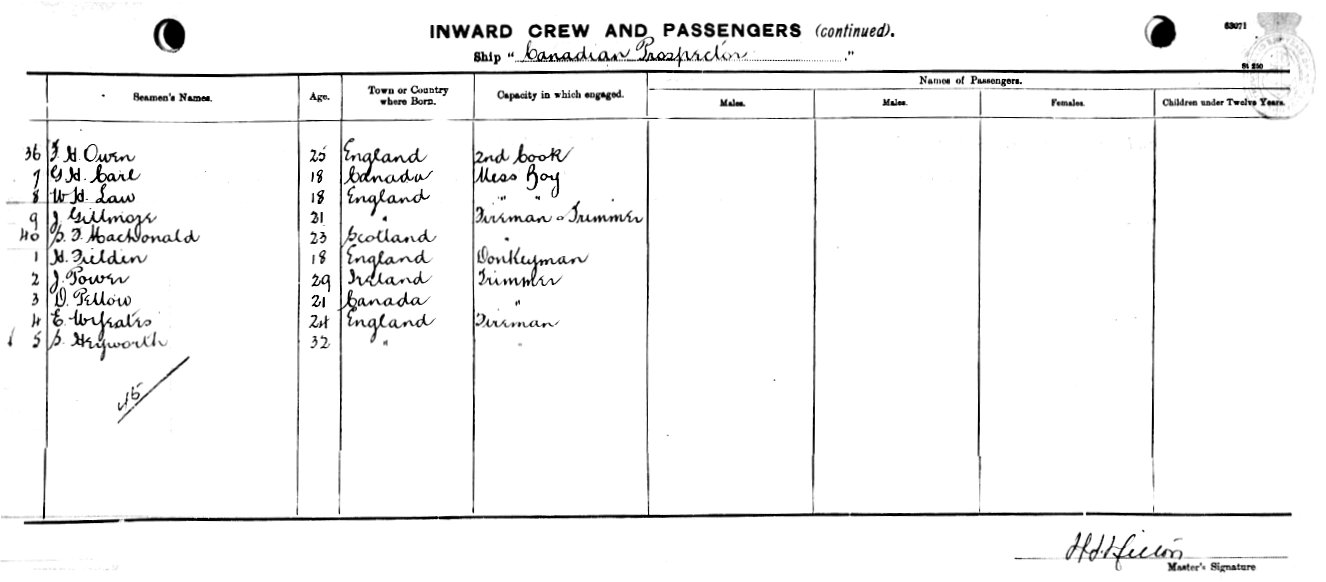 INWARD CREW AND PASSENGERS (continued).
63071
Ship "Canadian Prospector"
St 250
Seamen's Names. Age. Town or Country where Born. Capacity in which engaged. Names of Passengers.
Males. Males. Females. Children under Twelve Years.
36 F. H. Owen 25 England 2nd Cook
7 G. H. Carl 18 Canada Mess Boy
8 W. H. Law 18 England " "
9 J. Gillmore 21 " Fireman & Trimmer
40 S. F. MacDonald 23 Scotland "
1 H. Fieldin 18 England Donkeyman
2 J. Power 29 Ireland Trimmer
3 D. Pellow 21 Canada "
4 E. W. Yeates 24 England Fireman
5 S. Heyworth 32 " "
45
Master's Signature